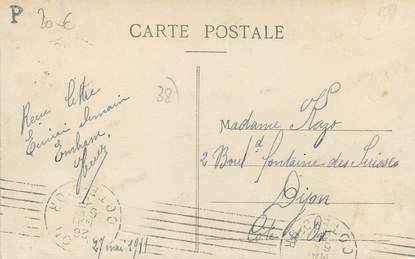 P 20 €
CARTE POSTALE
38)
Reçu lettre
Ecrirai demain
Madame Razo
2 Boul^d fontaine des Suisses
Dijon
Côte d'Or
27 mai 1911